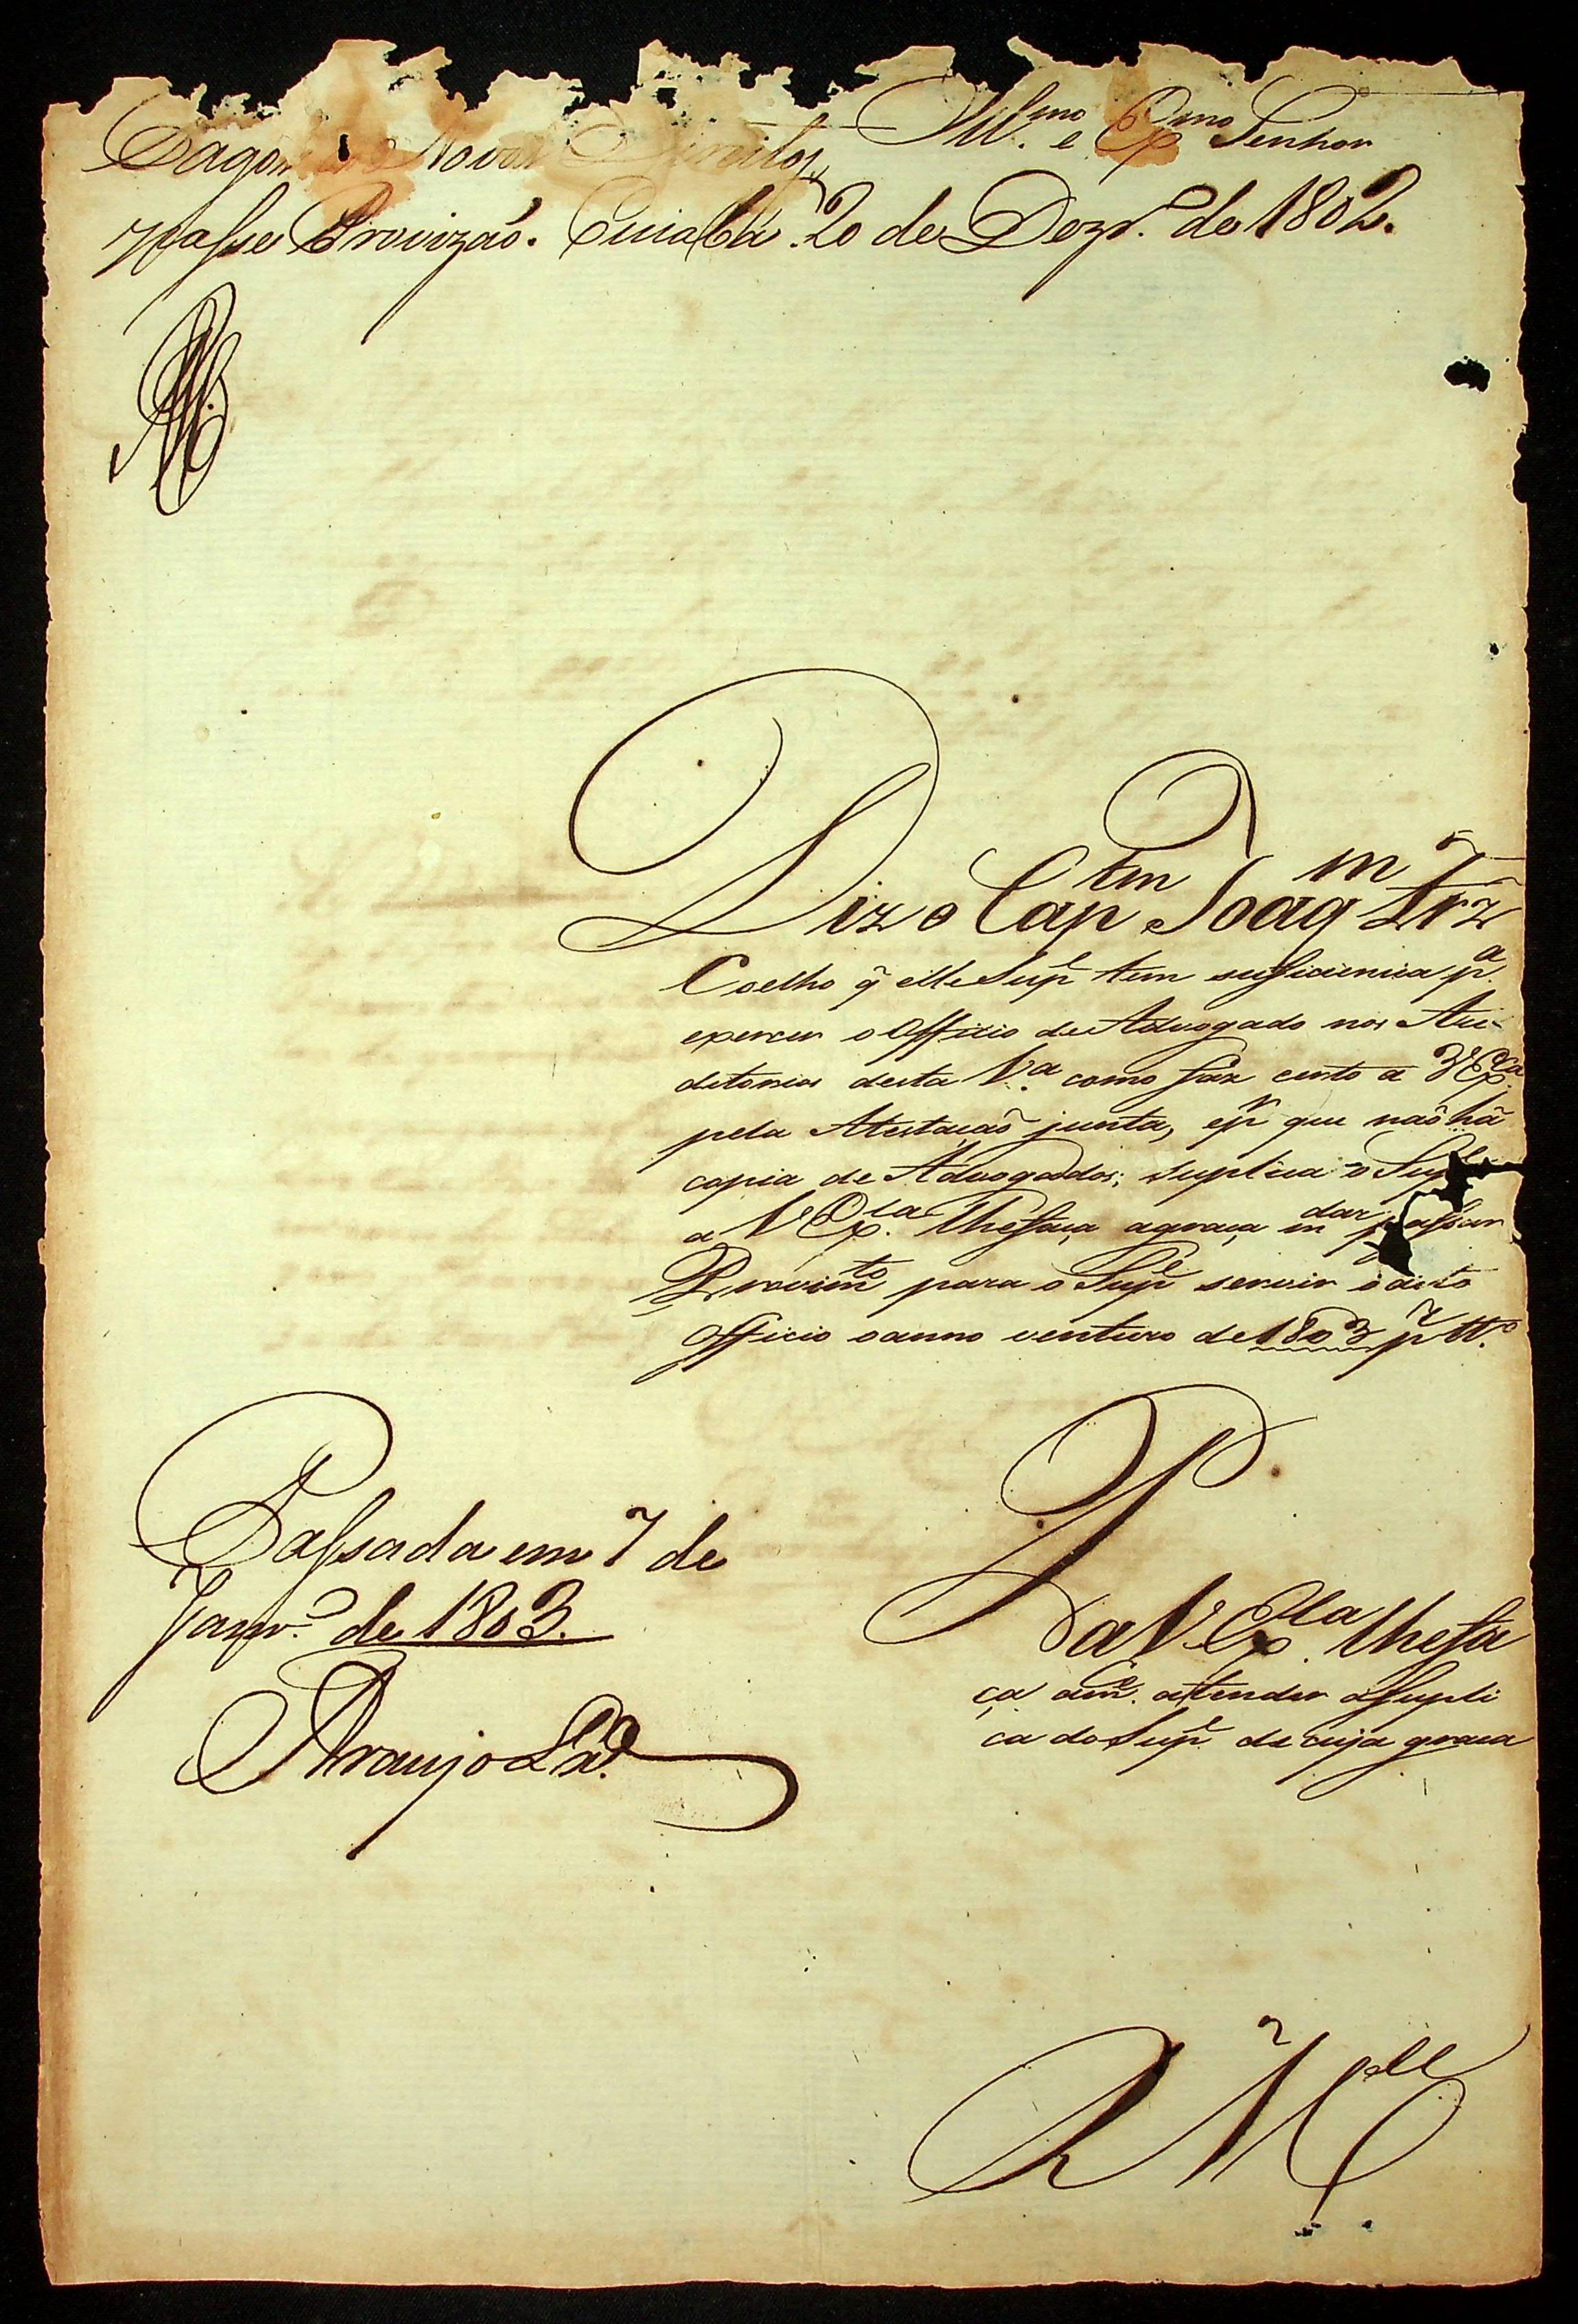 Ill.mo e Ex.mo Senhor
Pagos os Novos Direitos,
passe Provizaõ. Cuiabá 20 de Dezr.o de 1802.
Diz o Cap.tm Joaq.m
Coelho q̃ elle Sup.e tem suficiencia p.a
exercer o Officio de Advogado nos Au-
ditorios desta V.a como faz certo a V Ex.ca
pela Atestaçaõ junta, e p.r que naõ há
copia de Advogados; suplica o Sup.e
a V Ex.cia lhe faça a graça mdar passar
Provim.to para o Sup.e servir o dito
Officio o anno venturo de 1803 p.r tt.o
P.
a V. Ex.cia lhe fa
ça a m.ce atender a Supli
ca do Sup.e de cuja graça
Passada em 7 de
Janr.o de 1803.
Araujo
R M.ce